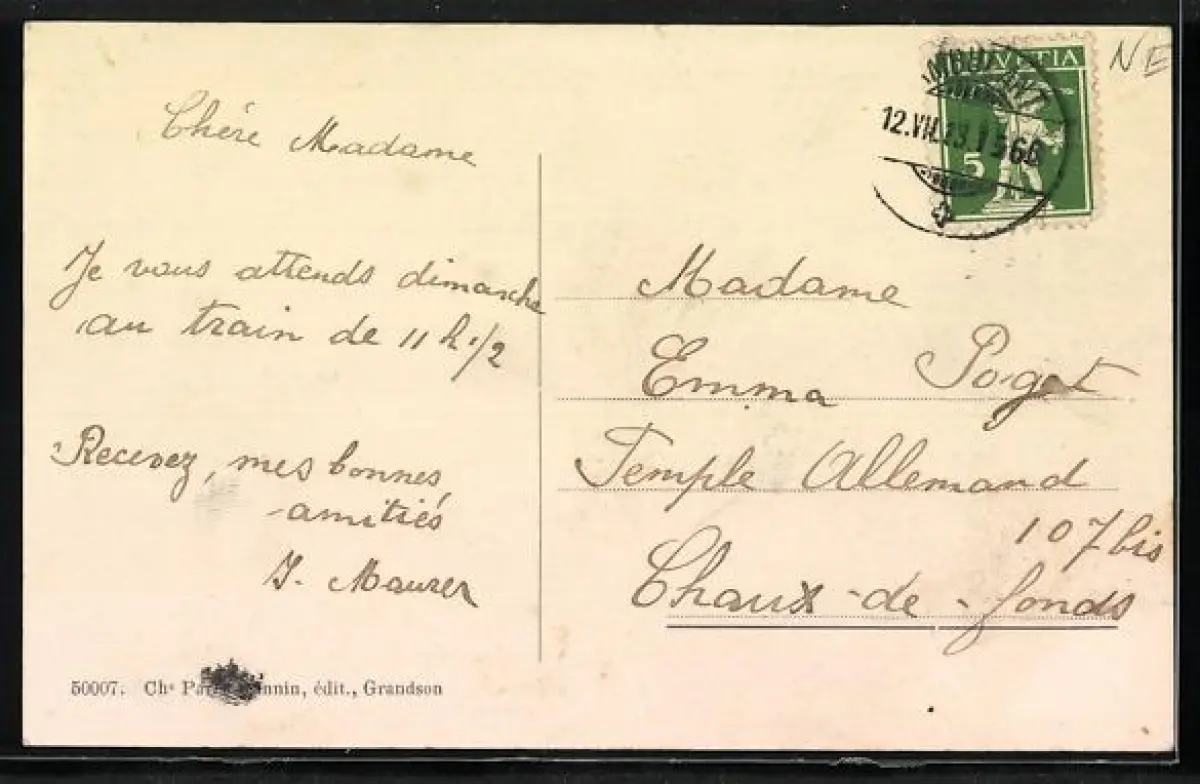 Chére Madame
Je vous attends dimanche
au train de 11 h. 1/2
Recevez, mes bonnes
amitiés
J. Maurer
50007. Chs édit., Grandson
NE
HELVETIA
AMBULANT
12.VII.13.1566
5
Madame
Emma Poget
Temple Allemand
107 bis
Chaux-de-fonds